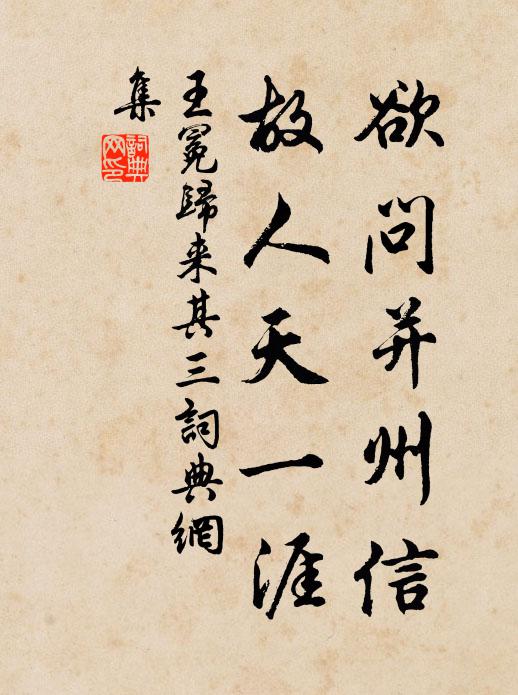 欲问并州信
故人天一涯
王冕歸来其三詞典網
集
詞典
网印